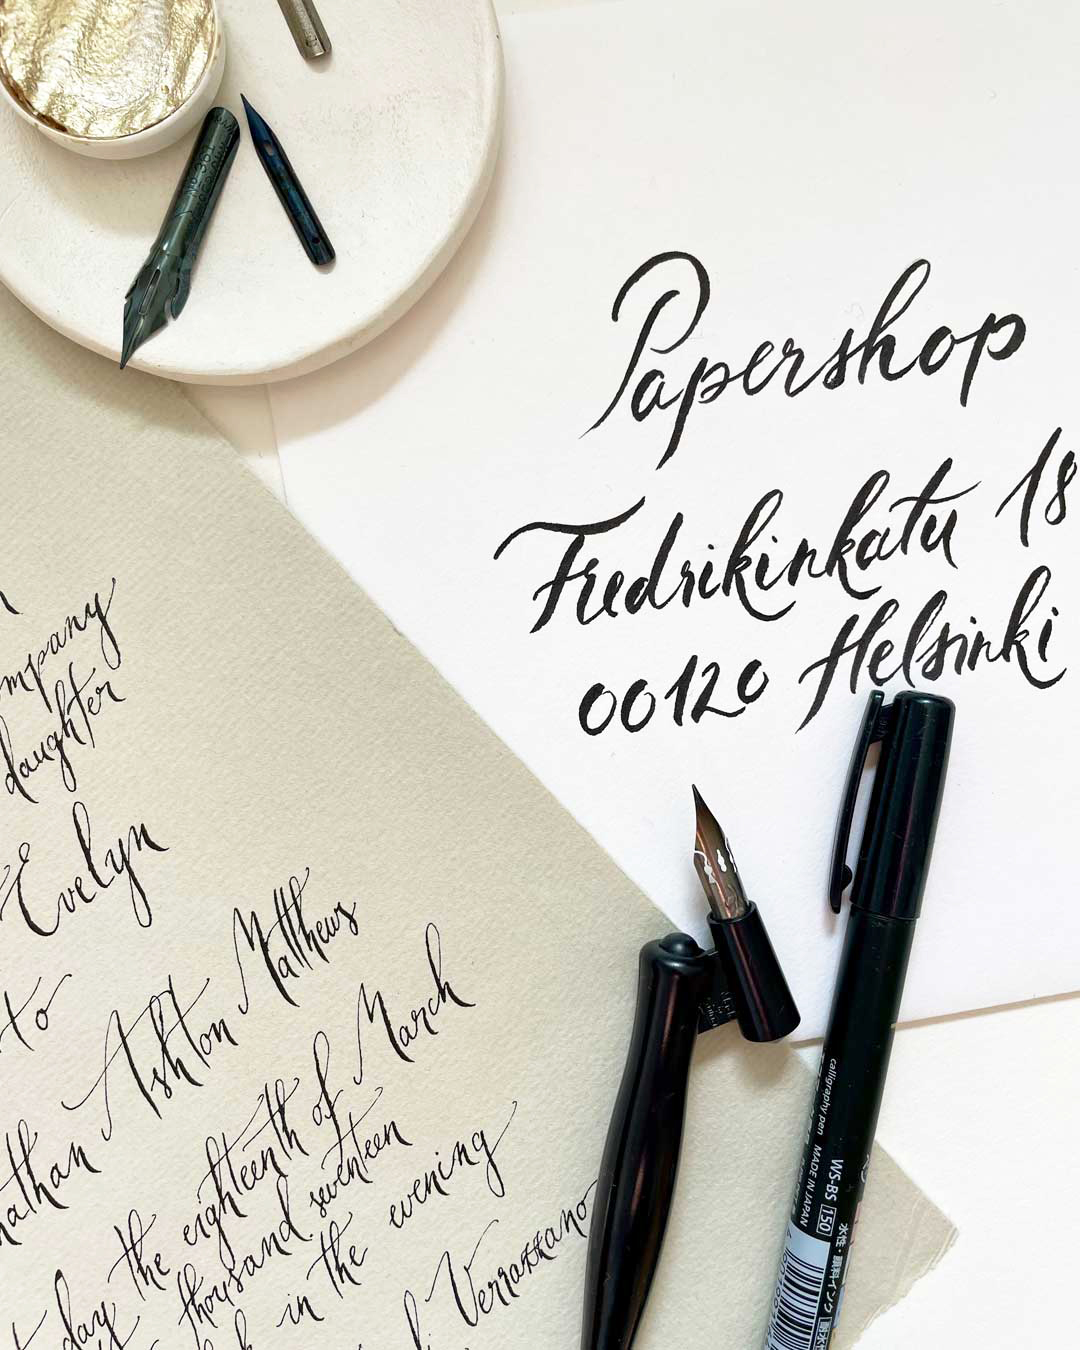 Papershop
Fredrikinkatu 18
00120 Helsinki
ompany
daughter
Evelyn
to
Ashton Matthews
nathan
day the eighteenth of March
thousand seventeen
in the evening
Verrazzano
No 361
calligraphy pen MADE IN JAPAN
WS-BS 150
水性・顔料インク